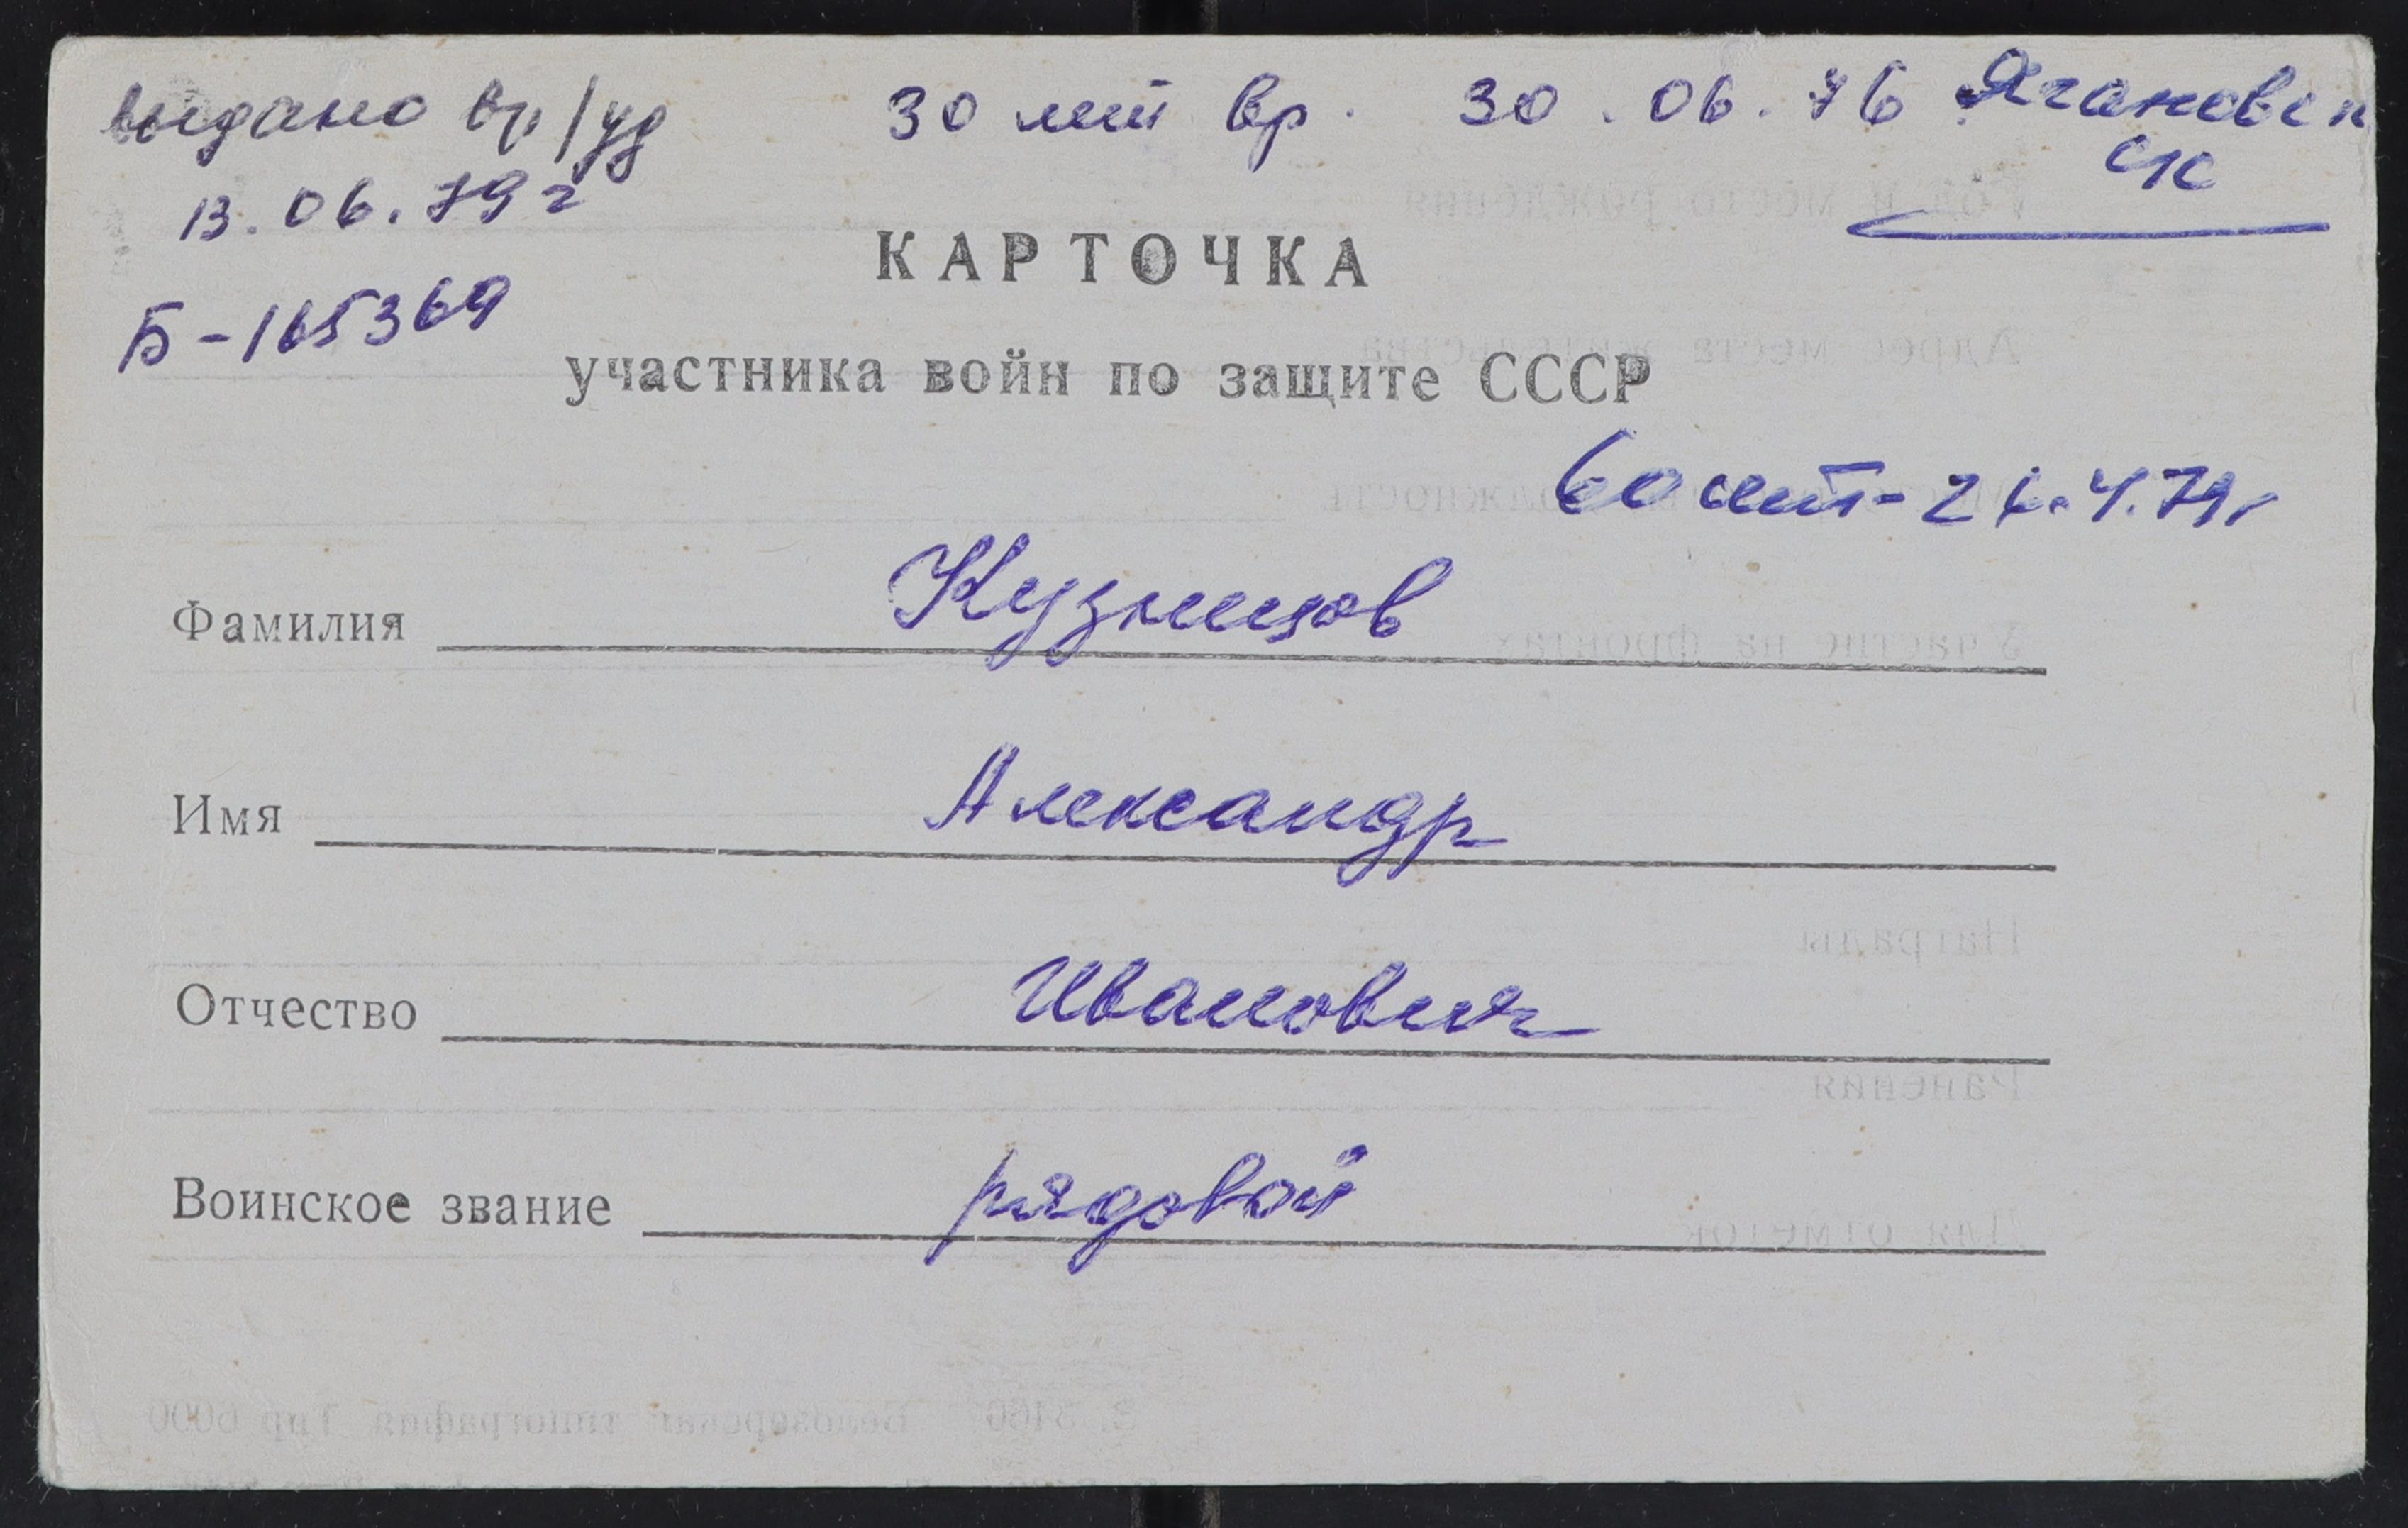 выдано вр/уд 30 лет вр. 30.06.76 Ягановск
13.06.79г с/с
КАРТОЧКА
Б-165369
участника войн по защите СССР
60 лет - 26.4.79г
Фамилия Кузнецов
Имя Александр
Отчество Иванович
Воинское звание рядовой